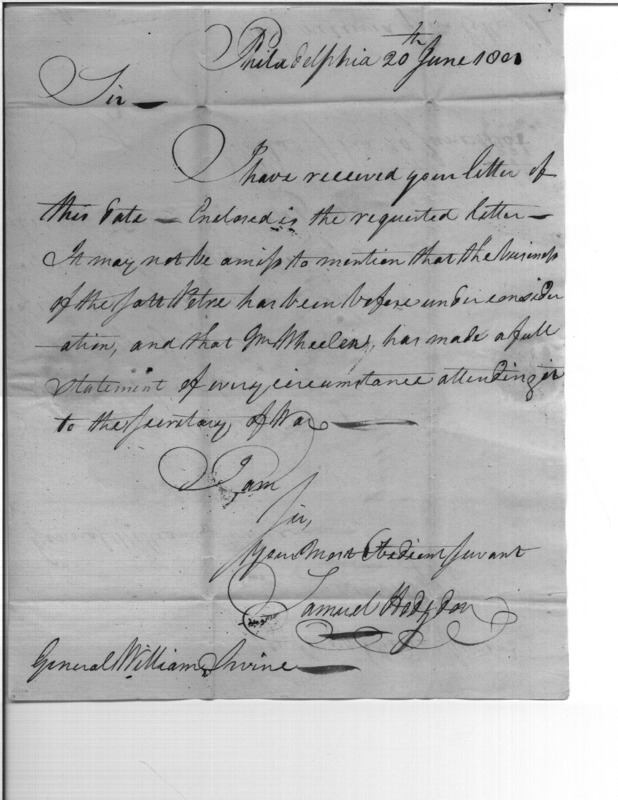 Philadelphia 20th June 1801
Sir —
I have received your letter of
this date — Enclosed is the requested letter —
It may not be amiss to mention that the business
of the Salt Petre has been before under consider
-ation, and that Mr Wheelen, has made a full
statement of every circumstance attending it
to the Secretary of War —
I am
Sir,
Your Most Obedient Servant
Samuel Hodgdon
General William Irvine —